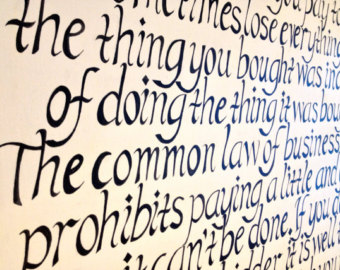 sometimes, lose everything
the thing you bought was inc
of doing the thing it was bou
The common law of business
prohibits paying a little and
it can't be done. If you d
bidder, it is well t